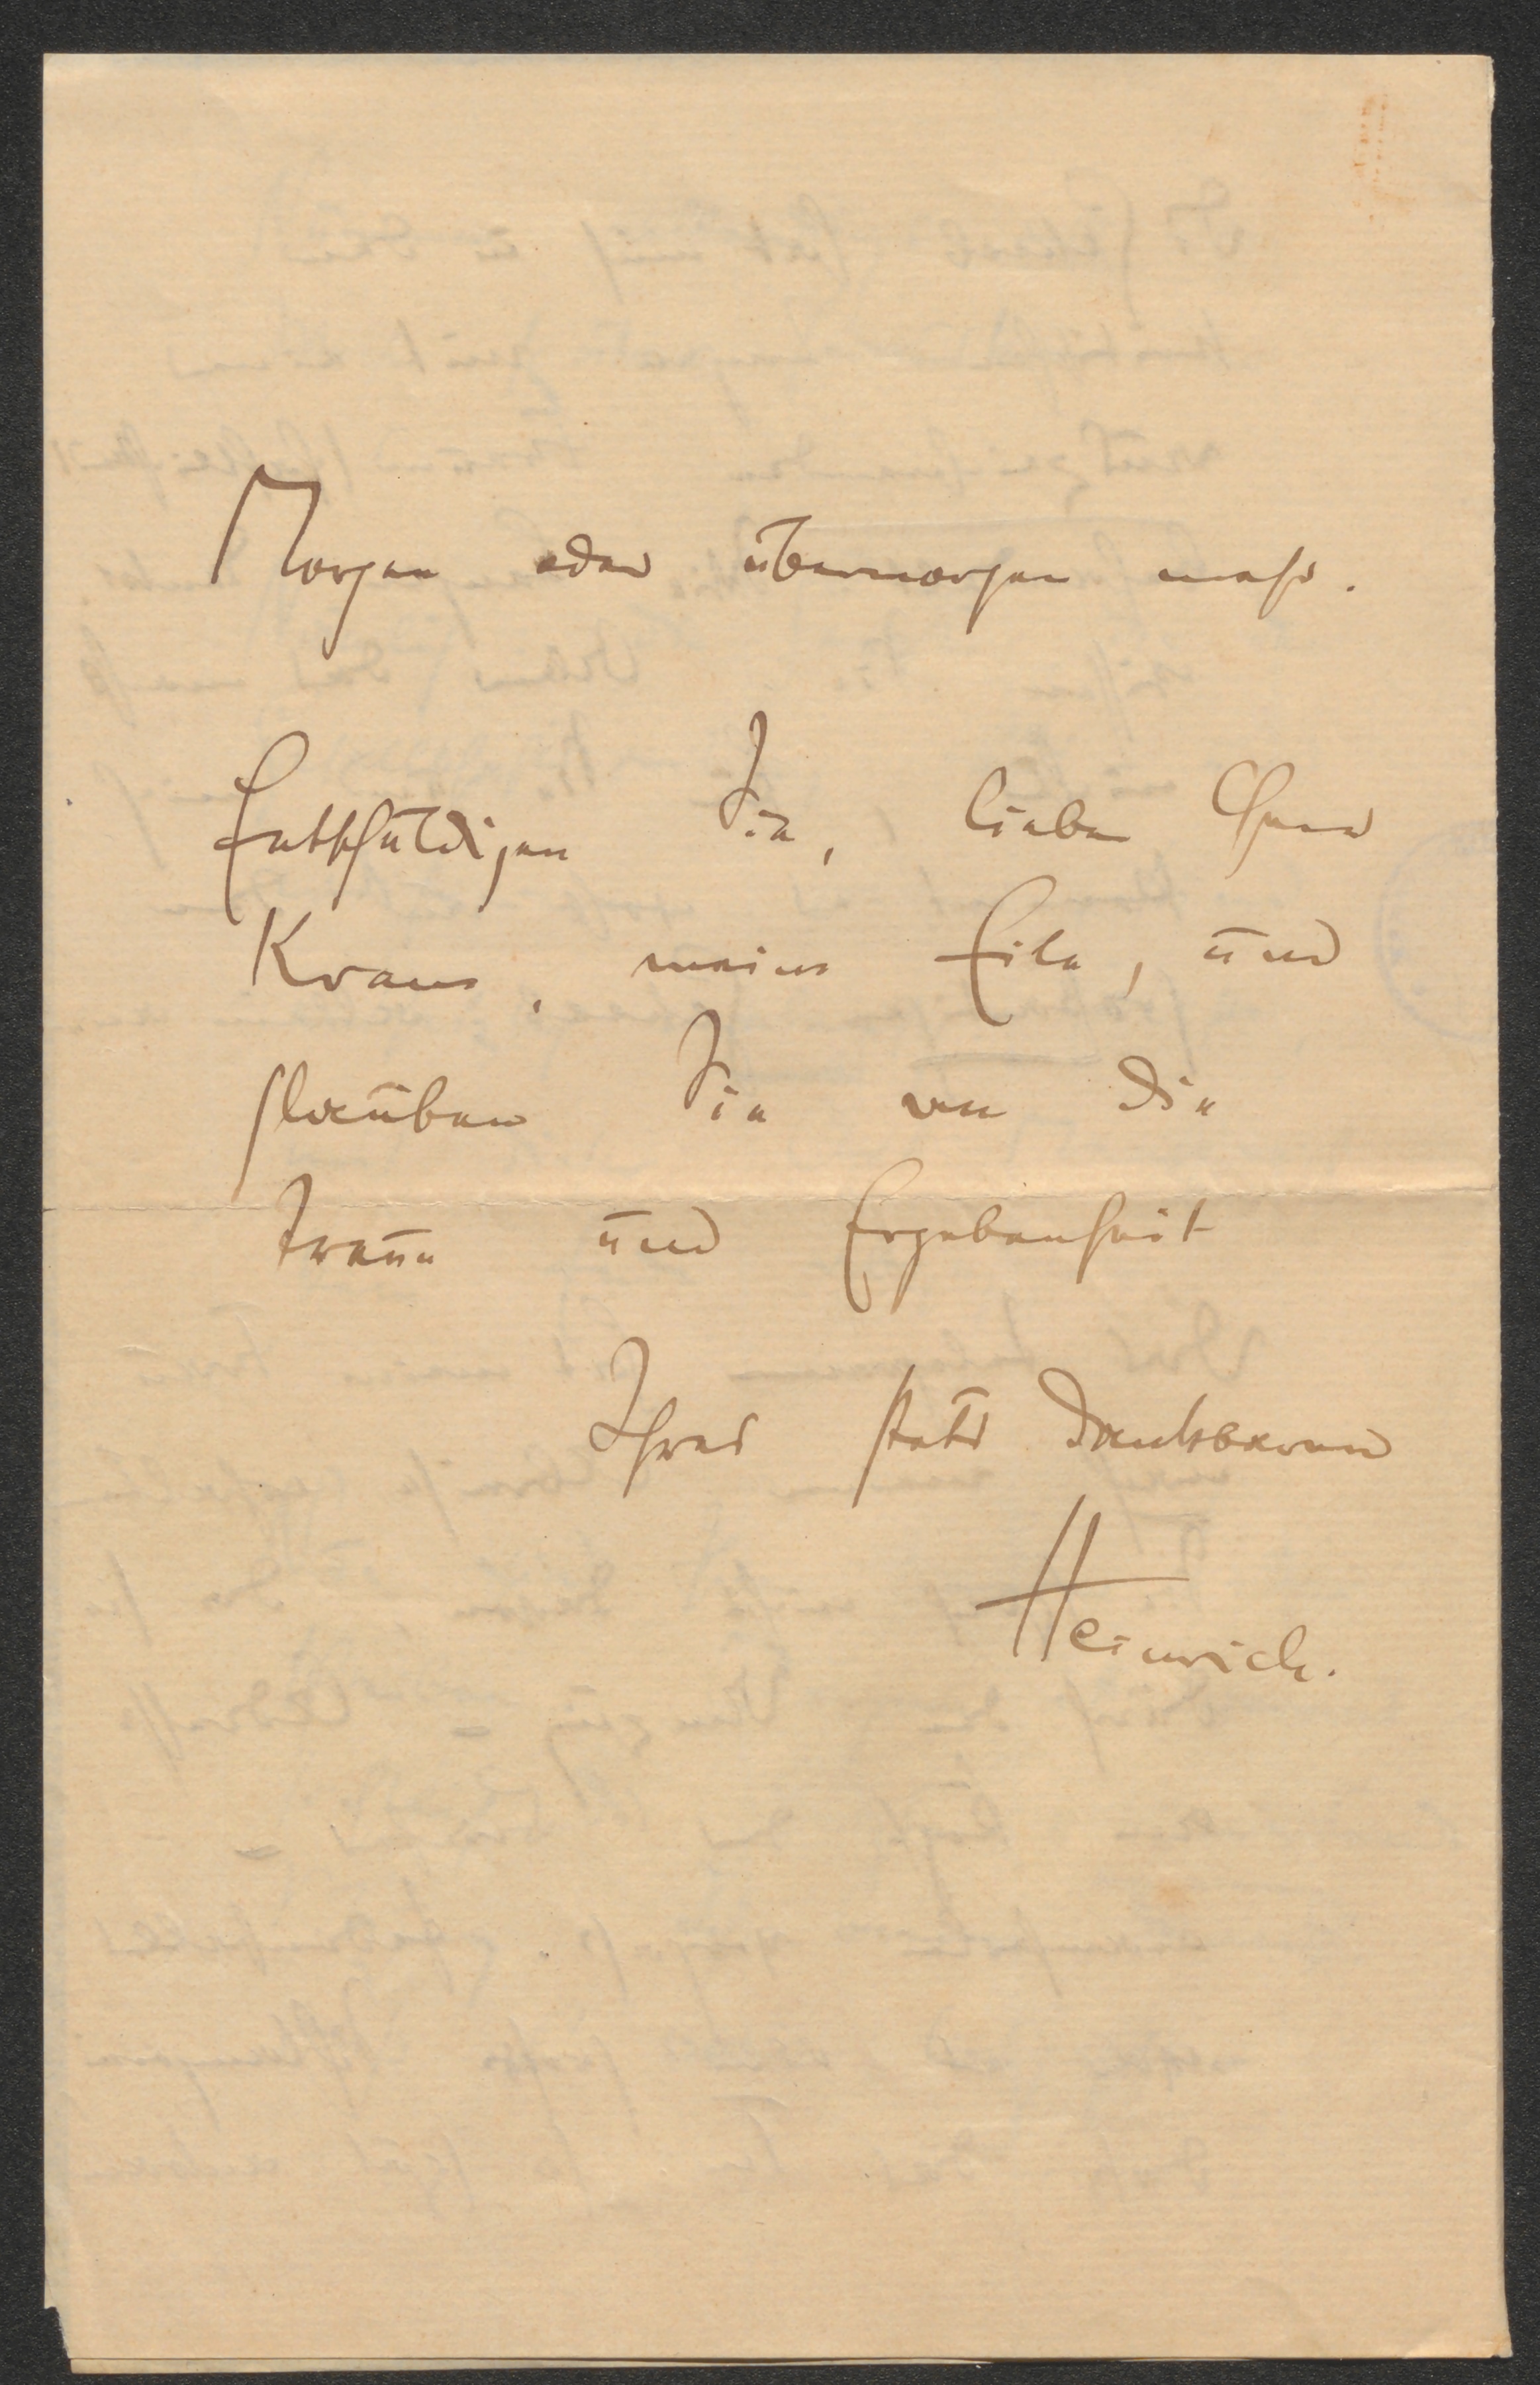 Morgen oder übermorgen mehr.
Entschuldigen Sie, lieber Herr
Kraus, meine Eile, und
glauben Sie an die
Treue und Ergebenheit
Ihres stets dankbaren
Heinrich.